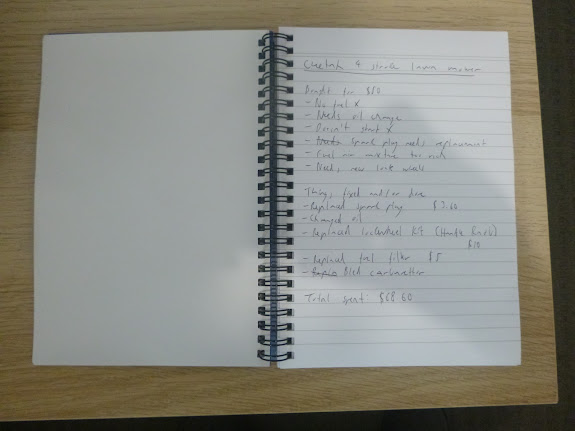 Cheetah 4 stroke lawn mower
Bought for $50
- No fuel x
- Needs oil change
- Doesn't start x
- Spark plug needs replacement
- Fuel air mixture too rich
- Needs new back wheels
Things fixed and/or done
- Replaced spark plug $3.60
- Changed oil
- Replaced Kit
$10
- Replaced fuel filter $5
- carburettor
Total spent: $68.60